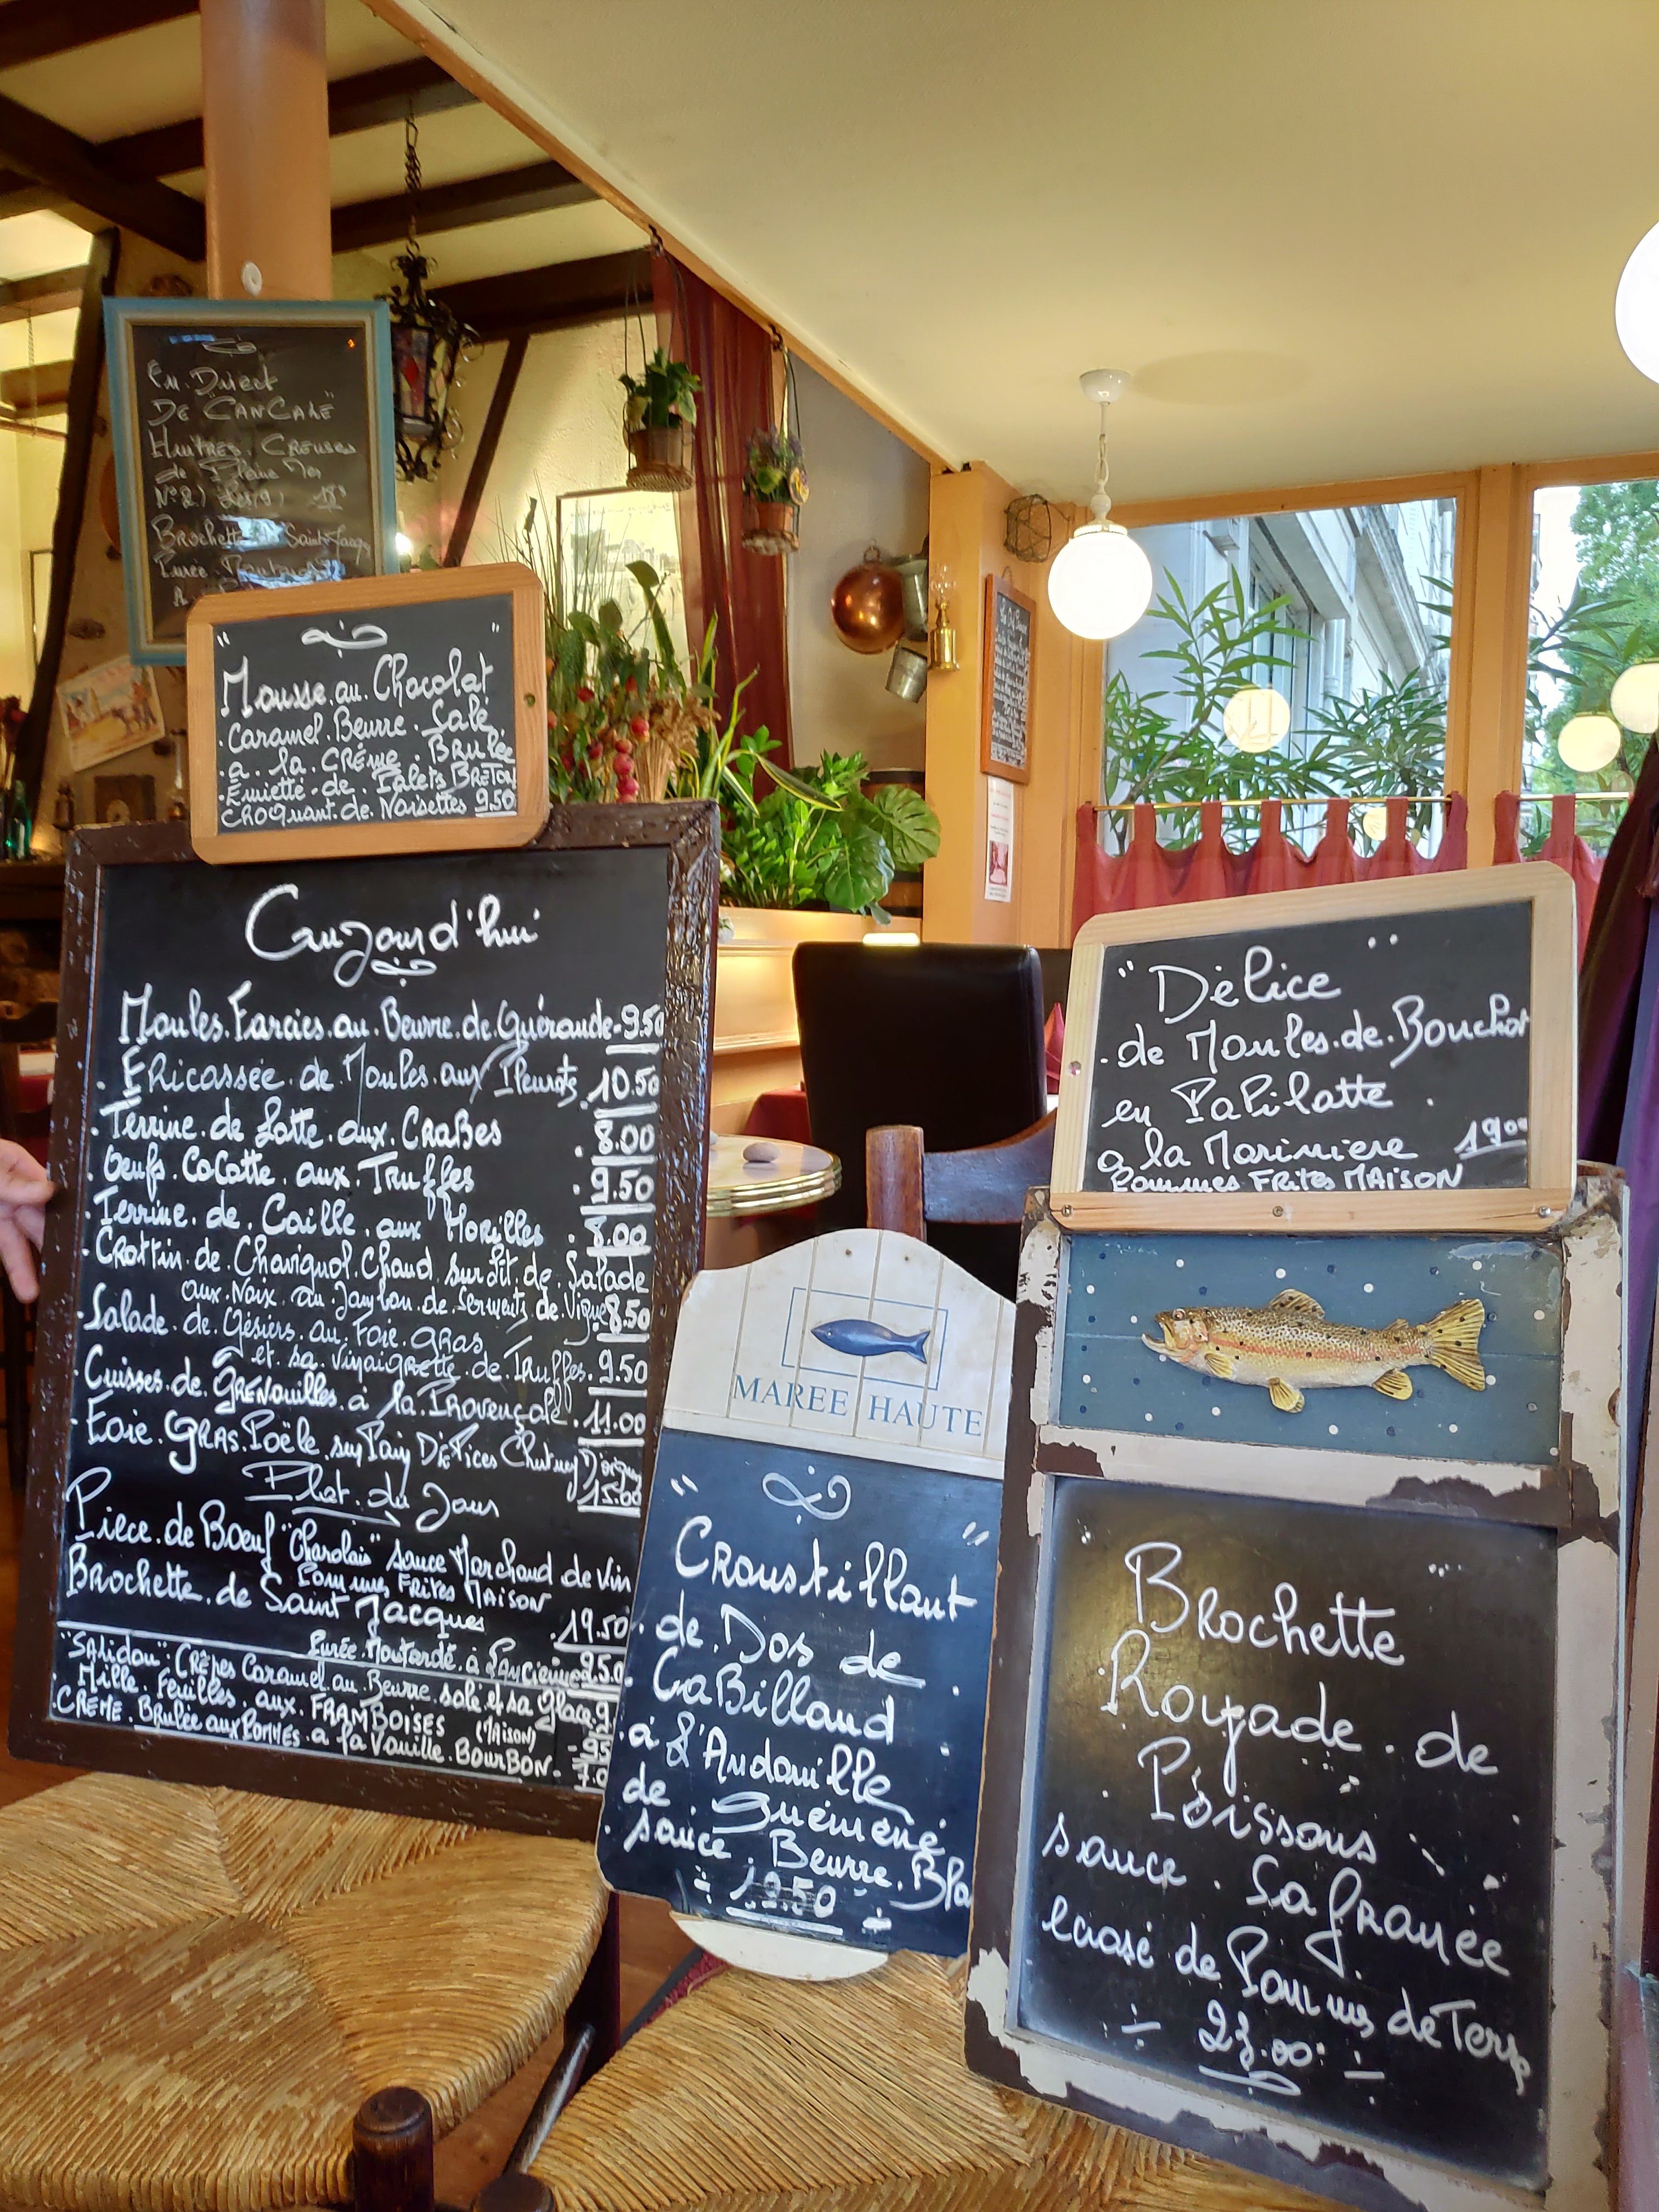 En Direct
DE "CANCALE"
HUITRES. CREUSES
de Pleine Mer
N°2)
Brochette de Saint Jacques
Purée
" "
Mousse. au. Chocolat
. Caramel. Beurre. Salé
. a. la. CRÉME. BRULÉE
. Emiette. de. Palets BRETON
CROQUANT. de. Noisettes 9.50
Aujourd'hui
Moules. Farcies. au. Beurre. de. Guérande - 9.50
. FRICASSÉE. de. Moules. aux Pleurots. 10.50
. Terrine. de. Lotte. aux. CRABES . 8.00
. Oeufs. COCOTTE. aux. TRUFFES . 9.50
. Terrine. de. Caille. aux Morilles . 8.00
. CROTTIN. de. Chavignol. Chaud. sur. Lit. de. Salade
aux. Noix. au. Jambon. de. Serments de. Vigne. 8.50
. Salade. de. Gésiers. au. Foie. GRAS
et. sa. VINAIGRETTE. de. Truffes. 9.50
. Cuisses. de. GRENOUILLES. à la. Provençale. 11.00
. Foie. GRAS. Poêlé. sur Pain D'EPices Chutney
15.00
Plat. du Jour
Pièce. de Boeuf "Charolais" sauce Marchand de Vin
Pommes FRITES MAISON . 19.50
Brochette. de Saint Jacques
Purée. Moutarde. à L'Ancienne
"SALIDOU": CRÊPES Caramel. au. Beurre. salé et sa glace
. Mille. Feuilles. aux. FRAMBOISES (MAISON)
. CRÈME. BRULÉE aux POMMES. a la Vanille. BOURBON.
MAREE HAUTE
" "
CROUSTILLANT
. de. Dos de
CABILLAUD .
. à L'Andouille
de. Guémené
. sauce. Beurre.
"Délice"
. de Moules. de. Bouchot
en PAPILLOTTE .
a la MARINIERE 19.00
Pommes FRITES MAISON
" "
BROCHETTE
ROYALE. de
Poissons
sauce. SAFRANÉE
ecrasé de Pommes de Terre